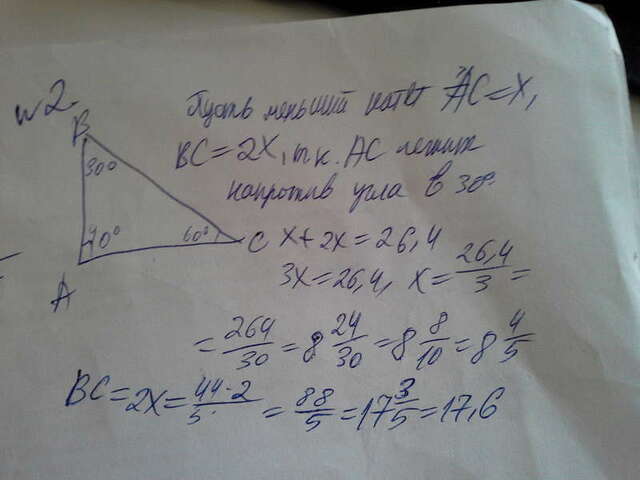 №2.
B
30°
90°
60°
C
A
Пусть меньший катет AC=X,
BC=2X, т.к. AC лежит
напротив угла в 30°
X+2X=26,4
3X=26,4, X=26,4/3=
=264/30=8 24/30=8 8/10=8 4/5
BC=2X=44·2/5=88/5=17 3/5=17,6